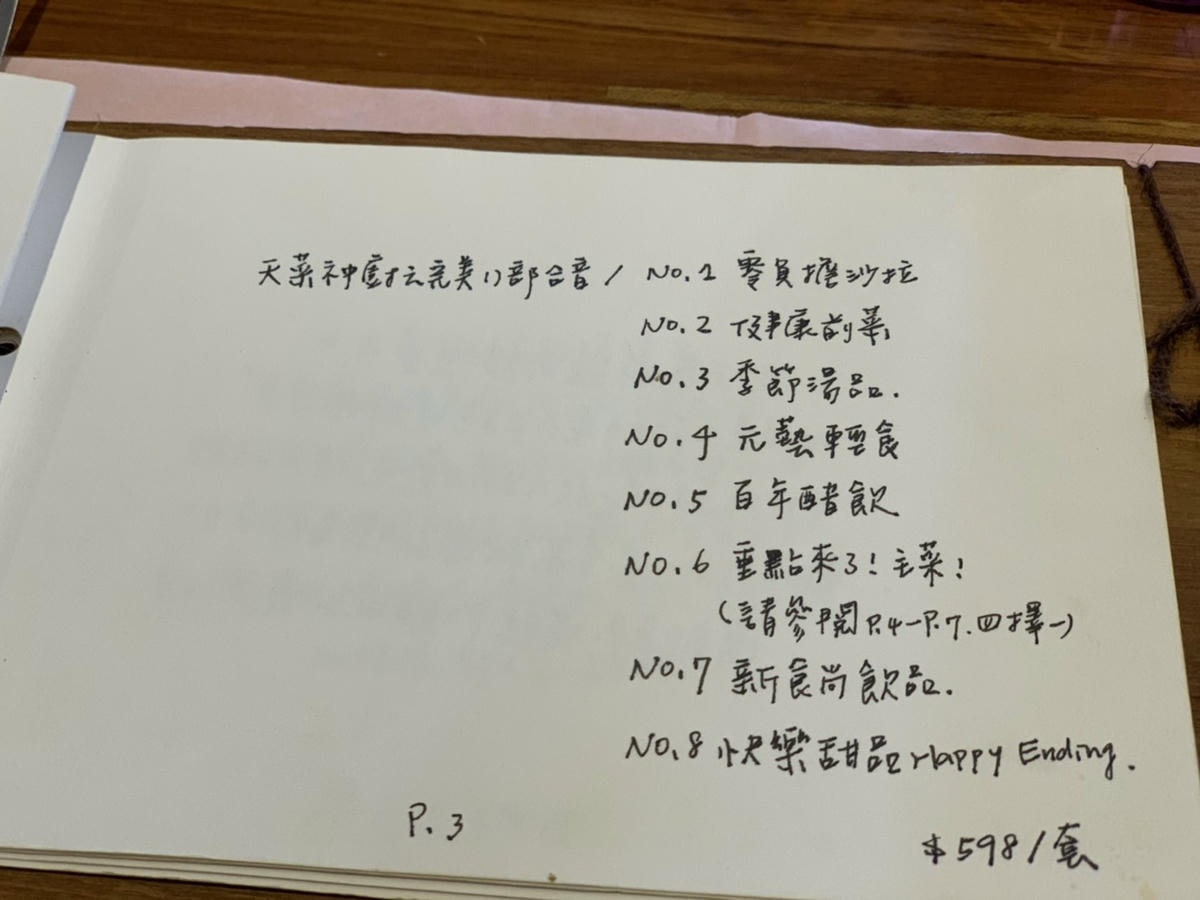 天菜神廚搖完美八部合音 / No.1 零負擔沙拉
No.2 健康前菜
No.3 季節湯品.
No.4 元藝輕食
No.5 百年醋飲
No.6 重點來了!主菜!
(請參閱P.4-P.7.四擇一)
No.7 新食尚飲品.
No.8 快樂甜品Happy Ending.
P.3
$598/套